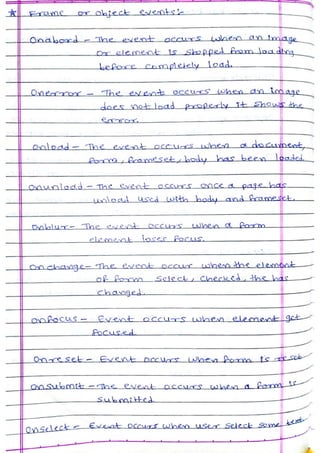 * Frame or object events:-
Onabord - The event occurs when an Image
or element is stopped from loading
before completely load.
Onerror - The event occurs when an Image
does not load properly it shows the
error.
Onload - The event occurs when a document,
form, frameset, body has been loaded
Onunload - The event occurs once a page has
unload used with body and frameset.
Onblur - The event occurs when a form
element loses focus.
Onchange - The event occur when the element
of form select, checked, the has
changed.
Onfocus - Event occurs when element get
focused
Onreset - Event occurs when form is reset
Onsubmit - The event occurs when a form is
submitted
Onselect - Event occurs when user select some text